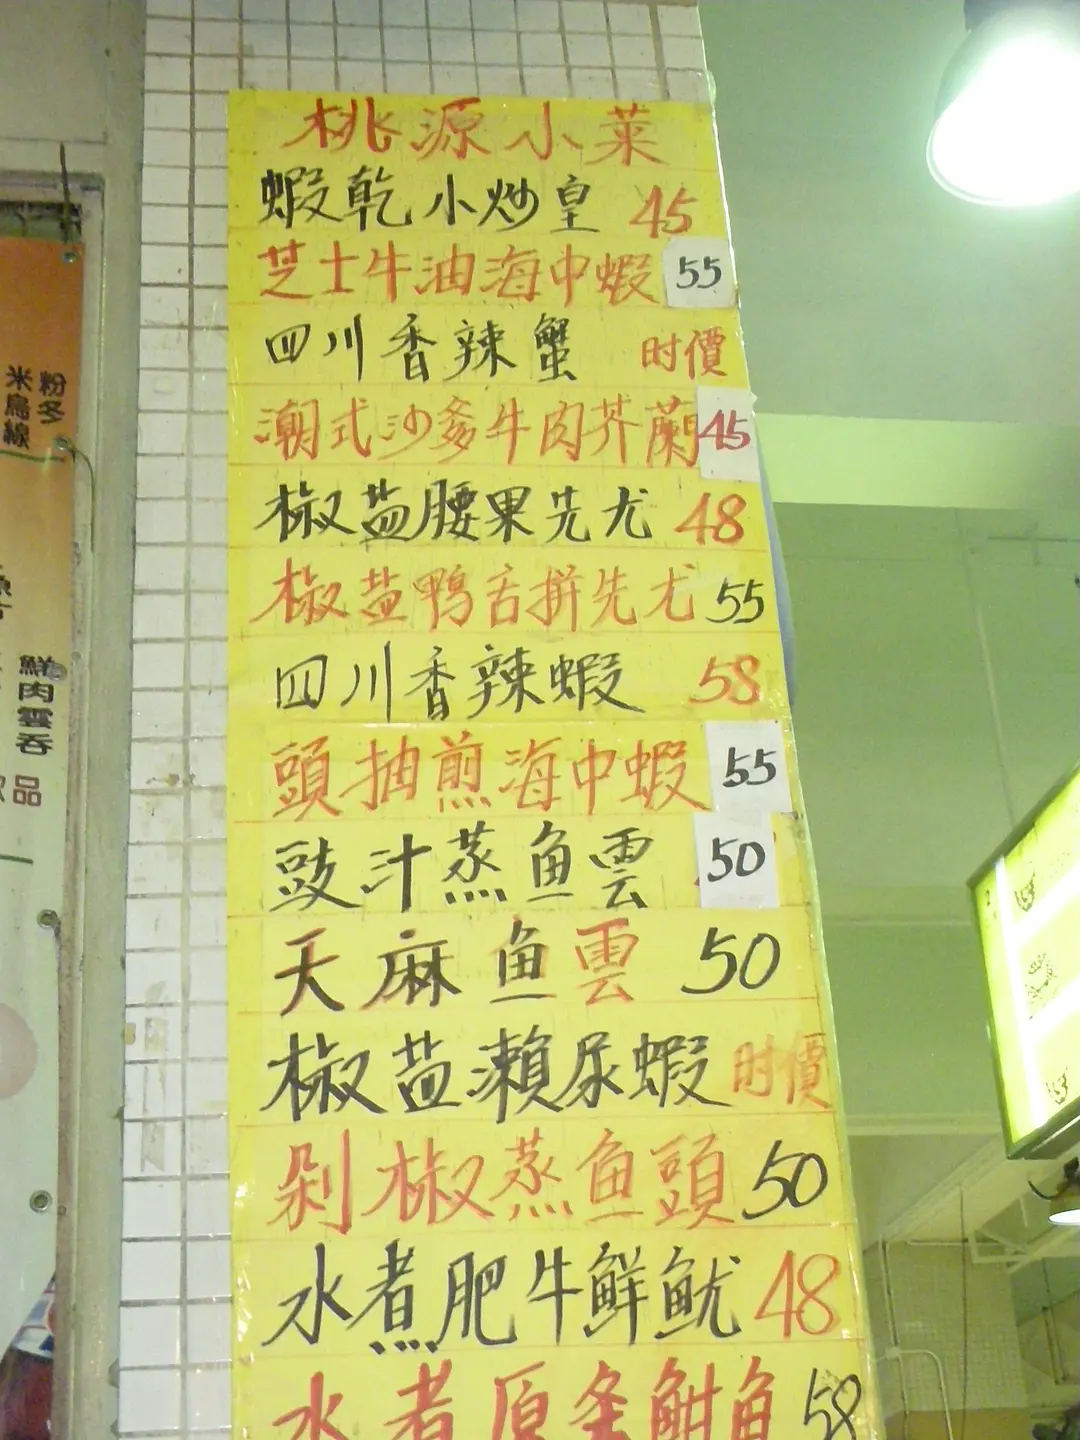 桃源小菜
蝦乾小炒皇 45
芝士牛油海中蝦 55
四川香辣蟹 时價
潮式沙爹牛肉芥蘭 45
椒盐腰果先尤 48
椒盐鴨舌拼先尤 55
四川香辣蝦 58
頭抽煎海中蝦 55
豉汁蒸鱼雲 50
天麻鱼雲 50
椒盐瀨尿蝦 时價
剁椒蒸鱼頭 50
水煮肥牛鮮魷 48
水煮原条鱼 58
粉冬
米烏線
鮮肉雲吞
品